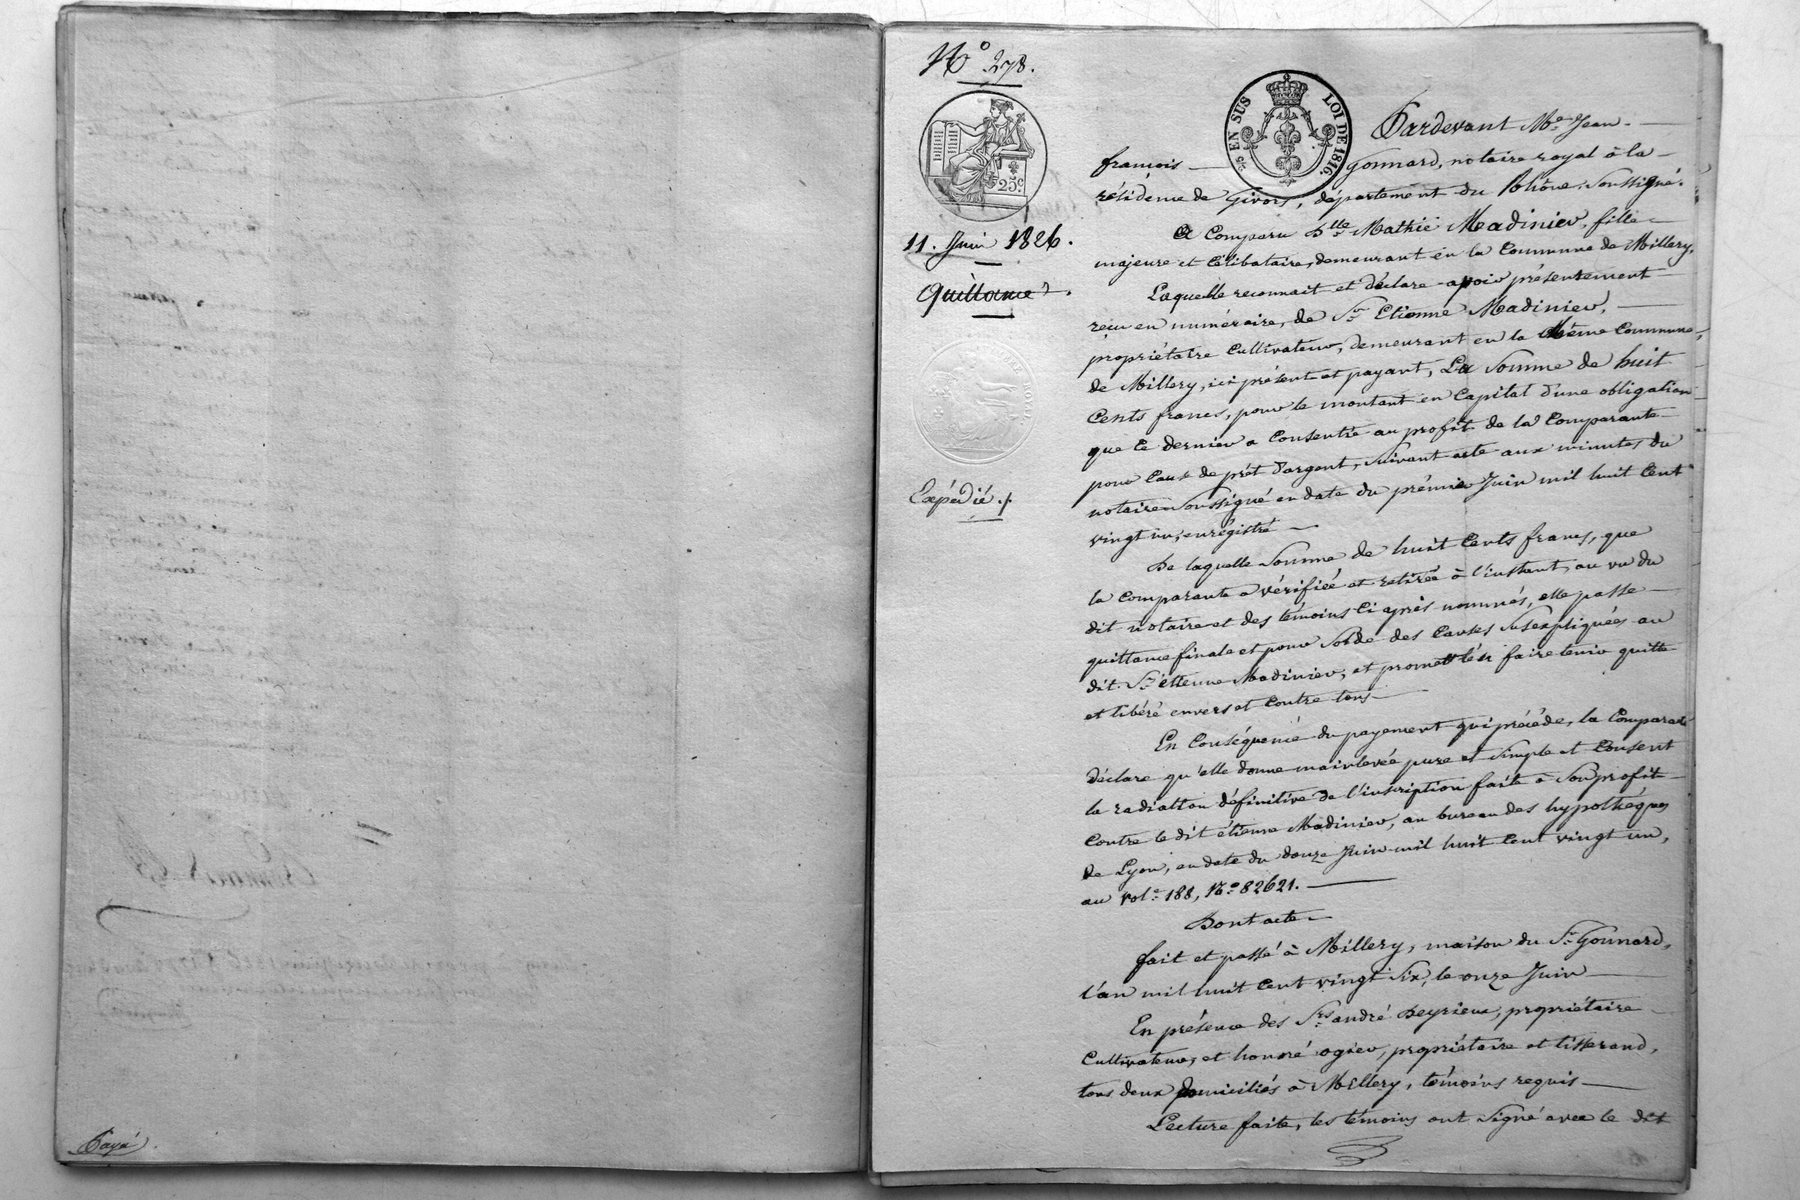 Payé
N° 278.
25 c.
11. Juin 1826.
Quittance
Expédié
EN SUS
LOI DE 1816.
Pardevant Me. Jean
francois Gonnard, notaire royal à la
résidence de Givors, département du Rhône, Soussigné.
A Comparu Dlle Mathie Madinier, fille
majeure et Célibataire, demeurant en la Commune de Millery,
Laquelle reconnait et déclare avoir présentement
reçu en numéraire, de Sr. Etienne Madinier,
propriétaire Cultivateur, demeurant en la Même Commune
de Millery, ici présent et payant, La Somme de huit
Cents francs, pour le montant en Capital d'une obligation
que Ce dernier a Consentie au profit de la Comparante
pour Cause de prêt d'argent, suivant acte aux minutes du
notaire Soussigné en date du prémier Juin mil huit Cent
vingt un, enrégistré
De laquelle Somme de huit Cents francs, que
la Comparante a vérifiée et retirée à l'instant, au vu du
dit notaire et des témoins Ci après nommés, elle passe
quittance finale et pour Solde des Causes Susexpliquées au
dit Sr. étienne Madinier, et promet le faire tenir quitte
et libéré envers et Contre tous
En Conséquence du payement qui précéde, la Comparante
déclare qu'elle donne mainlevée pure et Simple et Consent
la radiation définitive de l'inscription faite à Son profit
Contre le dit étienne Madinier, au bureau des hypothéques
de Lyon, en date du douze Juin mil huit Cent vingt un,
au vol. 188, N° 82621.
Dont acte
fait et passé à Millery, maison du Sr. Gonnard,
l'an mil huit Cent vingt Six, le onze Juin
En présence des Srs. andré Peyrieux, propriétaire
Cultivateur, et honoré ogier, propriétaire et tisserand,
tous deux domiciliés à Millery, témoins requis
Lecture faite, les témoins ont Signé avec le dit